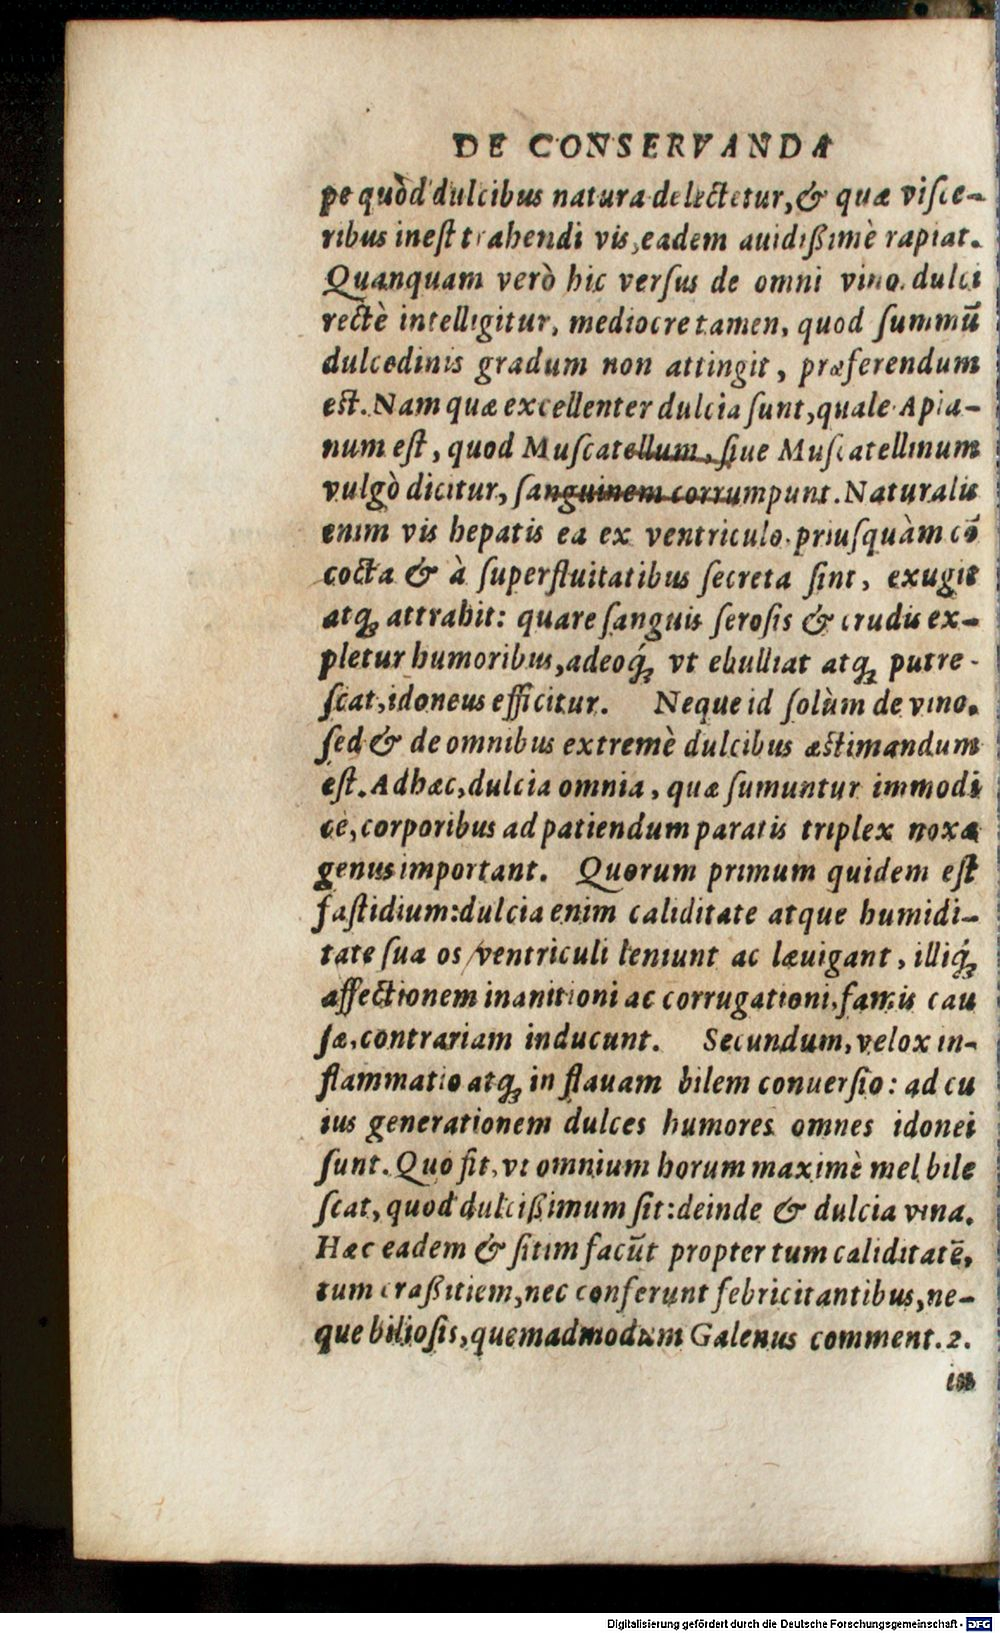 DE CONSERVANDA
pe quòd dulcibus natura delectetur, & quæ viſce-
ribus ineſt trahendi vis, eadem auidißimè rapiat.
Quanquam verò hic verſus de omni vino dulci
rectè intelligitur, mediocre tamen, quod ſummū
dulcedinis gradum non attingit, præferendum
est. Nam quæ excellenter dulcia ſunt, quale Apia-
num eſt, quod Muſcatellum, ſiue Muſcatellinum
vulgò dicitur, ſanguinem corrumpunt. Naturalis
enim vis hepatis ea ex ventriculo, priuſquàm cō
cocta & à ſuperfluitatibus ſecreta ſint, exugit
atq́ꝫ attrahit: quare ſanguis ſeroſis & crudis ex-
pletur humoribus, adeoq́ꝫ vt ebulliat atqꝫ putre-
ſcat, idoneus efficitur. Neque id ſolùm de vino,
ſed & de omnibus extremè dulcibus æstimandum
eſt. Ad hæc, dulcia omnia, quæ ſumuntur immodi
cè, corporibus ad patiendum paratis triplex noxæ
genus important. Quorum primum quidem eſt
faſtidium: dulcia enim caliditate atque humidi-
tate ſua os ventriculi leniunt ac læuigant, illiq́ꝫ
affectionem inanitioni ac corrugationi, famis cau
ſæ, contrariam inducunt. Secundum, velox in-
flammatio atqꝫ in flauam bilem conuerſio: ad cu
ius generationem dulces humores omnes idonei
ſunt. Quo fit, vt omnium horum maximè mel bile
ſcat, quod dulcißimum ſit: deinde & dulcia vina.
Hæc eadem & ſitim faciūt propter tum caliditatē,
tum craßitiem, nec conferunt febricitantibus, ne-
que bilioſis, quemadmodum Galenus comment. 2.
in
Digitalisierung gefördert durch die Deutsche Forschungsgemeinschaft - DFG